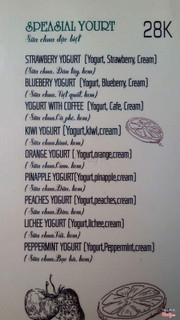 SPEASIAL YOURT
28K
Sữa chua đặc biệt
STRAWBERY YOGURT (Yogurt, Strawberry, Cream)
(Sữa chua, Dâu tây, kem)
BLUEBERY YOGURT (Yogurt, Blueberry, Cream)
(Sữa chua, Việt quất, kem)
YOGURT WITH COFFEE (Yogurt, Cafe, Cream)
(Sữa chua, Cà phê, kem)
KIWI YOGURT (Yogurt,kiwi,cream)
(Sữa chua,kiwi, kem)
ORANGE YOGURT (Yogurt,orange,cream)
(Sữa chua, Cam, kem)
PINAPPLE YOGURT(Yogurt,pinapple,cream)
(Sữa chua, Dứa, kem)
PEACHES YOGURT(Yogurt,peaches,cream)
(Sữa chua, Đào, kem)
LICHEE YOGURT(Yogurt,lichee,cream)
(Sữa chua, Vải, kem)
PEPPERMINT YOGURT (Yogurt,Peppermint,cream)
(Sữa chua, Bạc hà, kem)